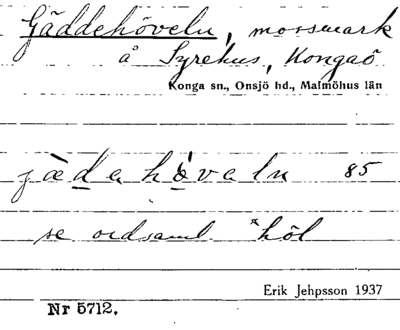 Gäddehöveln, mossmark
å Syrehus, Kongaö
Konga sn., Onsjö hd., Malmöhus län
jæ̀dehö́veln 85
se ordsaml. *höl
Erik Jehpsson 1937
Nr 5712.